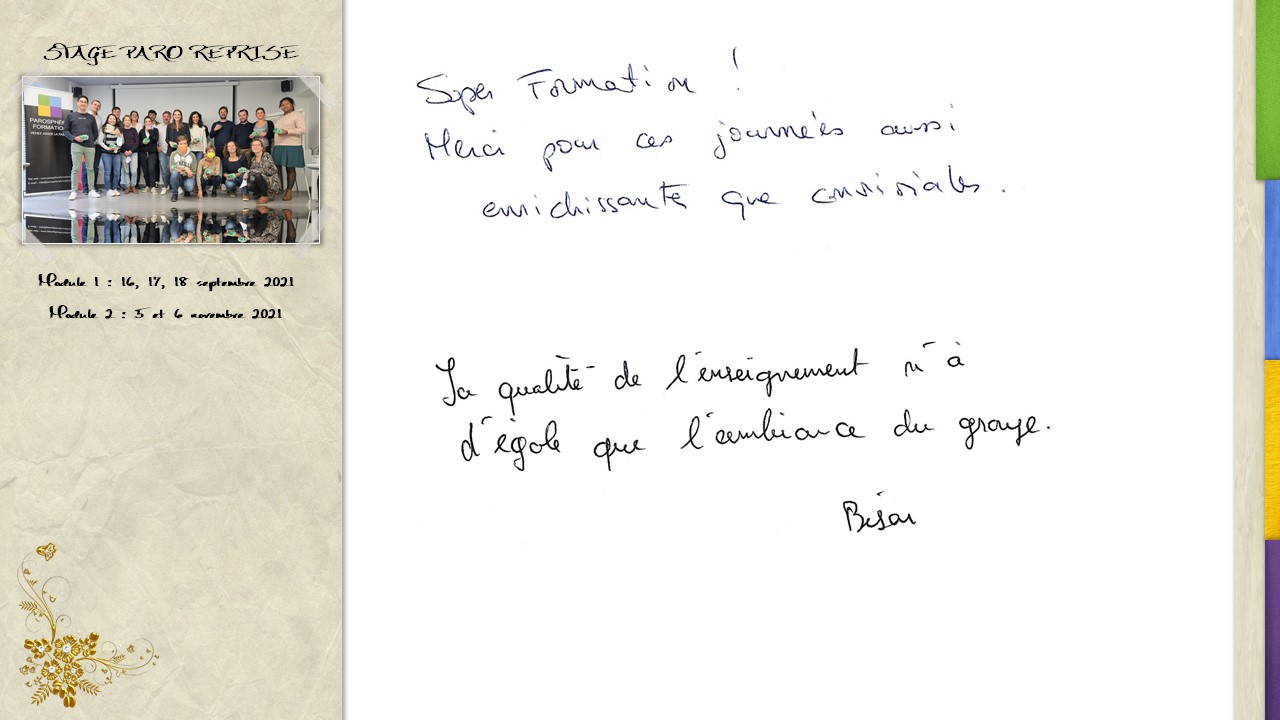 STAGE PARO REPRISE
PAROSPHÈRE
FORMATION
Module 1 : 16, 17, 18 septembre 2021
Module 2 : 5 et 6 novembre 2021
Super Formation !
Merci pour ces journées aussi
enrichissantes que conviviales.
La qualité de l'enseignement n'a
d'égale que l'ambiance du groupe.